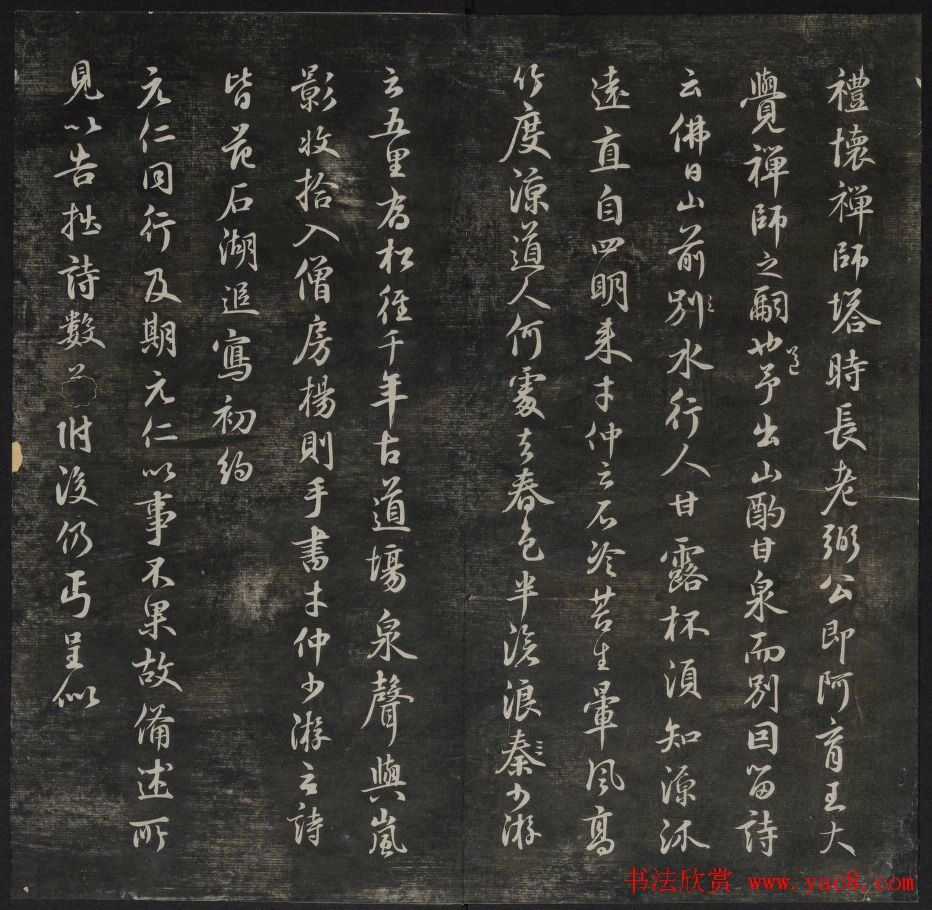 禮懷禪師塔時長老弼公即阿育王大
覺禪師之嗣也予出山酌甘泉而別因留詩
云佛日山前別水行人甘露杯須知源沐
遠直自四明来才仲云石冷苔生暈風高
竹度涼道人何處去春色半滄浪秦少游
云五里喬松徑千年古道場泉聲與嵐
影收拾入僧房楊則手書才仲少游云詩
皆范石湖追寫初約
元仁同行及期元仁以事不果故備述所
見以告拙詩數附後仍丐呈似
书法欣赏 www.yac8.com